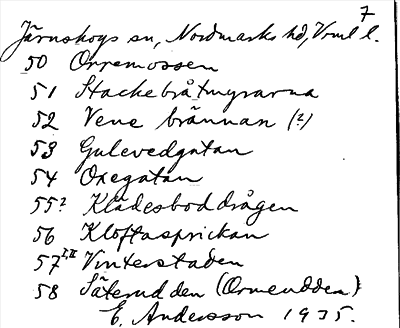 7
Järnskogs sn, Nordmarks hd, Vrml l.
50 Orremossen
51 Stackebråtmyrarna
52 Vene brännan (?)
53 Gulevedgatan
54 Oxegatan
55? Klädesboddrågen
56 Kloftasprickan
57 I,II Vinterstaden
58 Säterudden (Ormudden)
E. Andersson 1935.